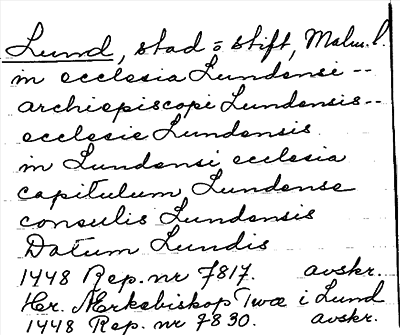 Lund, stad o stift, Malm.l.
in ecclesia Lundensi --
archiepiscopi Lundensis--
ecclesie Lundensis
in Lundensi ecclesia
capitulum Lundense
consulis Lundensis
Datum Lundis
1448 Rep. nr 7817. avskr.
Hr. Ærkebiskop Twæ i Lund
1448 Rep. nr 7830. avskr.